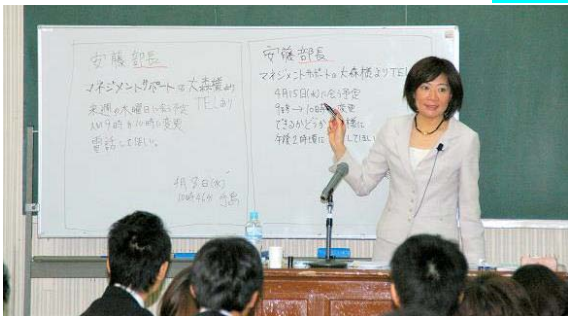 安藤部長
マネジメントサポートの大森様より
来週の木曜日に会う予定
TELあり
10時に変更
電話してほしい。
4月8日(水)
10時46分
安藤部長
マネジメントサポートの大森様よりTEL
4月15日(水)に会う予定
9時→10時に変更
できるかどうか 様に
午後2時頃に してほしい